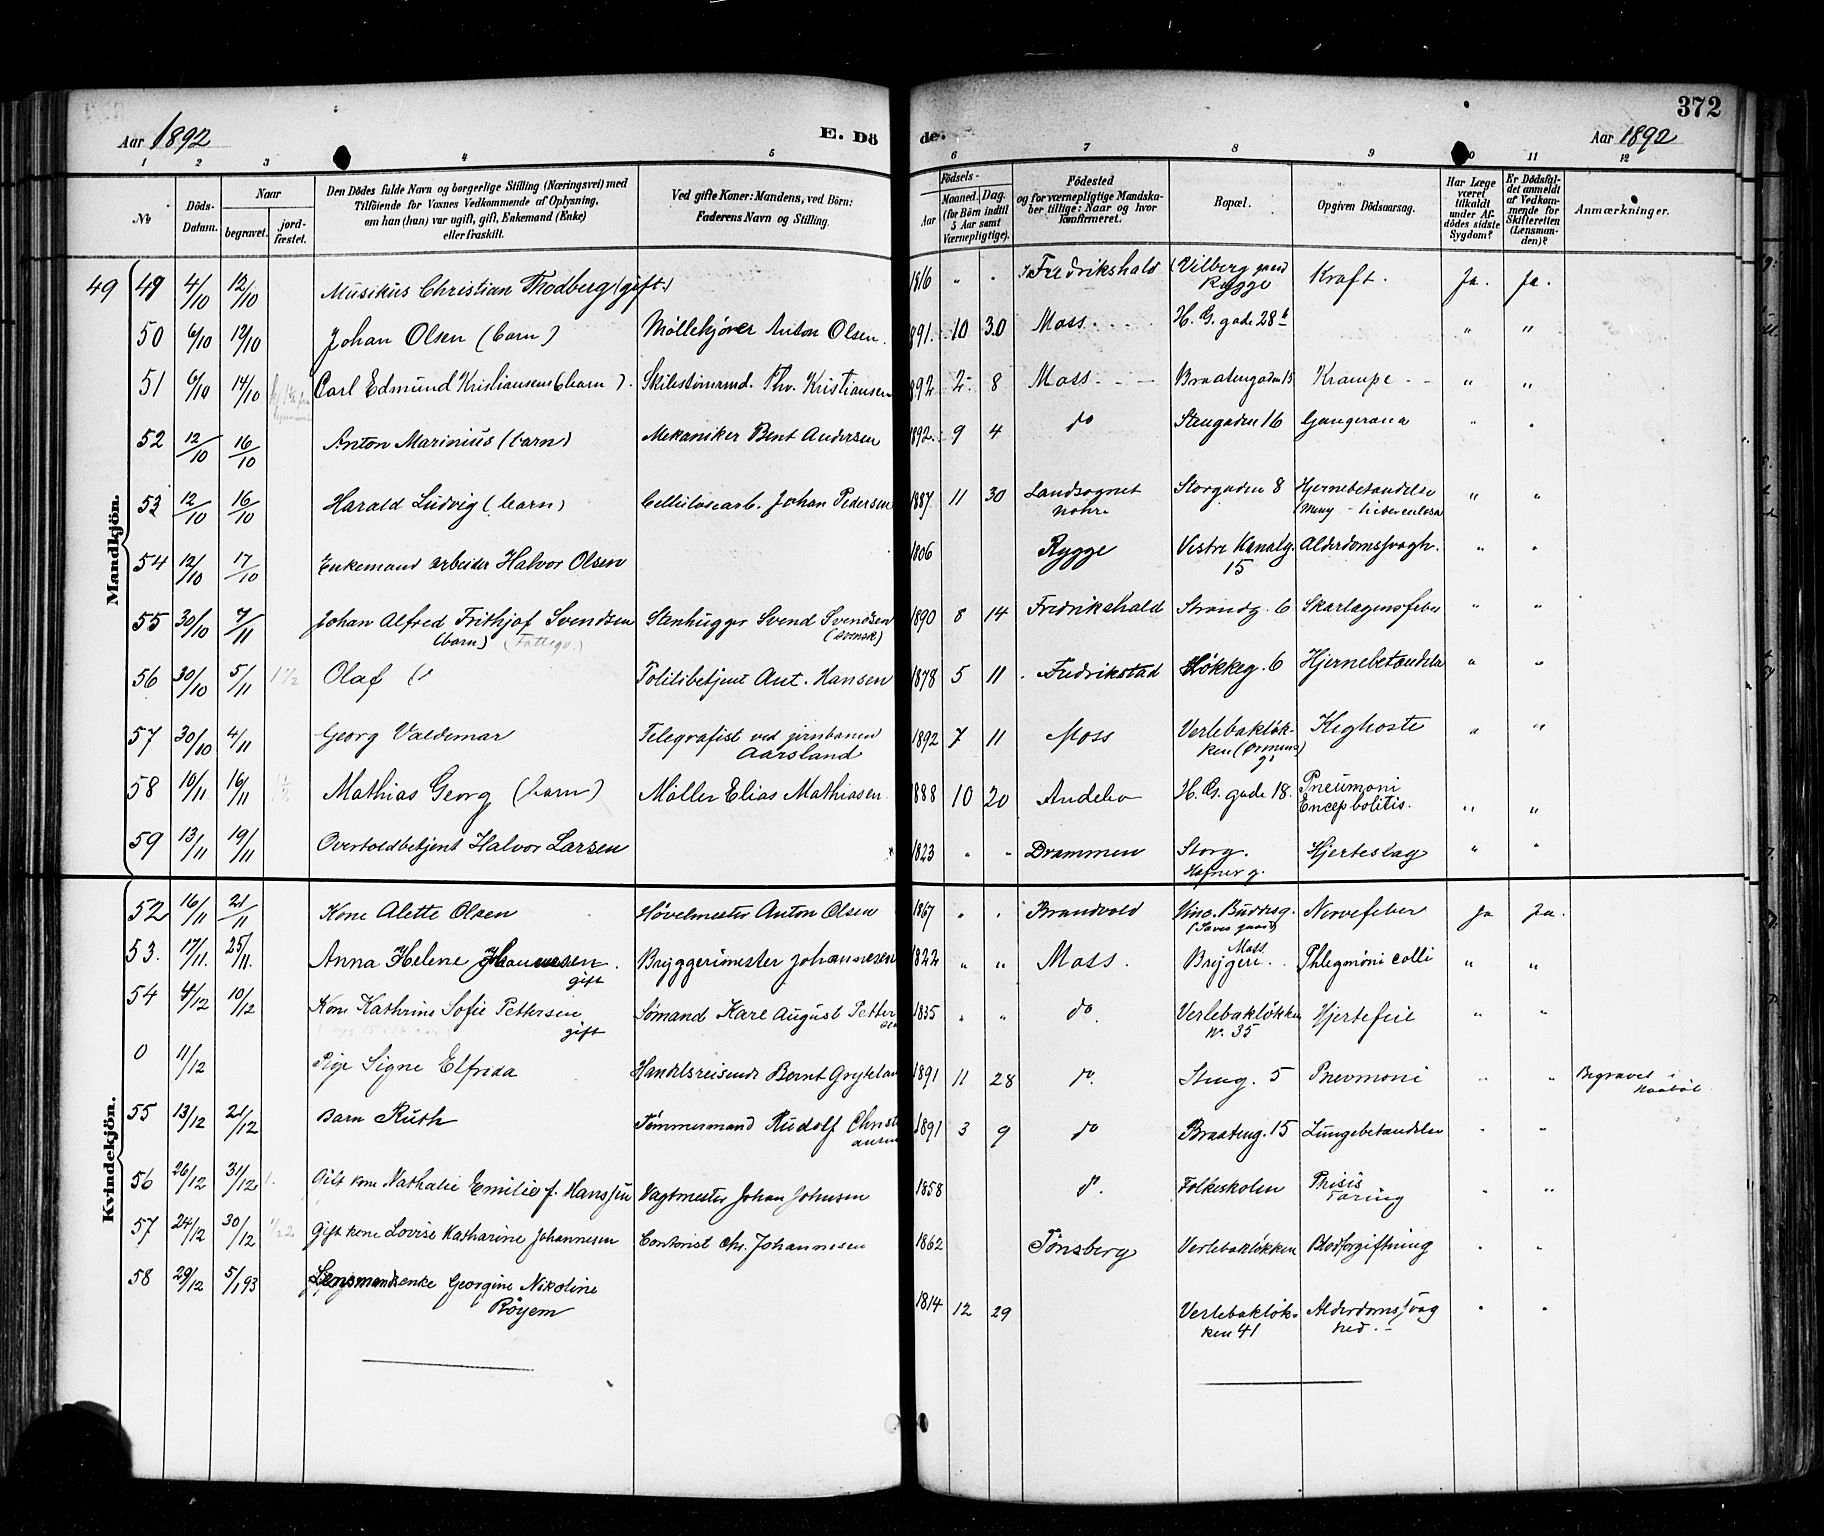 372
Aar 1892
E. Dö
de.
Aar 1892
1 2 3 4 5 6 7 8 9 10 11 12
No
Döds-
Datum.
Naar
begravet.
jord-
fæstet.
Den Dödes fulde Navn og borgerlige Stilling (Næringsvei) med
Tilföiende for Voxnes Vedkommende af Oplysning,
om han (hun) var ugift, gift, Enkemand (Enke)
eller fraskilt.
Ved gifte Koner: Mandens, ved Börn:
Faderens Navn og Stilling.
Födsels-
Aar
Maaned. Dag.
(for Börn indtil
5 Aar samt
Værnepligtige).
Födested
og for værnepligtige Mandska-
ber tillige: Naar og hvor
konfirmeret.
Bopæl.
Opgiven Dödsaarsag.
Har Læge
været
tilkaldt
under Af-
dödes sidste
Sygdom?
Er Dödsfal-
det anmeldt
af Vedkom-
mende for
Skifteretten
(Lensman-
den)?
Anmærkninger.
Mandkjön.
49 49 4/10 12/10 Musikus Christian Thodberg (gift) 1816 " " Fredrikshald (Vilberg gaard Kraft. Ja. Ja.
Rygge
50 6/10 12/10 Johan Olsen (barn) Möllekjörer Anton Olsen. 891. 10 30 Moss. H. G. gade 28 b " "
51 6/10 14/10 Carl Edmund Kristiansen (barn). Skibstömmd. Thv. Kristiansen 892 2. 8 Moss Braatengaden 15 Krampe " "
52 12/10 16/10 Anton Marinius (barn) Mekaniker Bent Andersen 1892. 9 4 do Stengaden 16 Gangerana " "
53 12/10 16/10 Harald Ludvig (barn) Cellulosearb. Johan Pedersen 1887 11 30 Landsognet Storgaden 8 Hjernebetændelse " "
54 12/10 17/10 Enkemand arbeider Halvor Olsen 1806 Rygge Vestre Kanalg. Alderdomssvagh. " "
15
55 30/10 7/11 Johan Alfred Frithjof Svendsen Stenhugger Svend Svendsen 1890 8 14 Fredrikshald Strandg. 6 Skarlagensfeber " "
(barn) (Fattigv.) (svensk)
56 30/10 5/11 1 1/2 Olaf (" Politibetjent Ant. Hansen 1878 5 11 Fredrikstad Lökkeg. 6 Hjernebetændelse " "
57 30/10 4/11 Georg Valdemar Telegrafist ved jernbanen 1892 7 11 Moss Verlebaklök- Kighoste " "
Aarsland
58 10/11 16/11 Mathias Georg (barn) Möller Elias Mathiasen 1888 10 20 Andebo H. G. gade 18. Pneumoni
" "
59 13/11 19/11 Overtoldbetjent Halvor Larsen 1823 " " Drammen Storg. Hjerteslag " "
Hafner g.
Kvindekjön.
52 16/11 21/11 Kone Alette Olsen Hövelmester Anton Olsen 1867 " " Brandvold Vinc. Buddesg. Nervefeber Ja Ja.
53. 17/11. 25/11. Anna Helene Johannesen. Bryggerimester Johannesen 1822 " " Moss. Moss Bryggeri. Phlegmöni colli " "
gift
54 4/12 10/12 Kone Kathrine Sofie Pettersen Sömand Karl August Petter 1835 " " do. Verlebaklökken Hjertefeil " "
gift sen No. 35
0 11/12 Pige Signe Elfrida Handelsreisende Bernt Gryteland 1891 11 28 do. Steng. 5 Pnevmoni " " Begravet i
55 13/12 21/12 Barn Ruth Tömmermand Rudolf Christi 1891 3 9 do Braateng. 15 Lungebetændelse " "
ansen
56 26/12 31/12 Gift kone Nathalie Emilie f. Hanssen Vagtmester Johan Johnsen 1858 do. Folkeskolen Phisis " "
Tæring
57 24/12 30/12 Gift kone Lovise Katharine Johannesen Contorist Chr. Johannesen 1862 Tönsberg Verlebaklökken Blodforgiftning " "
58 29/12 5/1 93 Lensmandsenke Georgine Nikoline
Röyem 1814 12 29 Verlebaklök- Alderdomssvag " "
ken 41 hed.